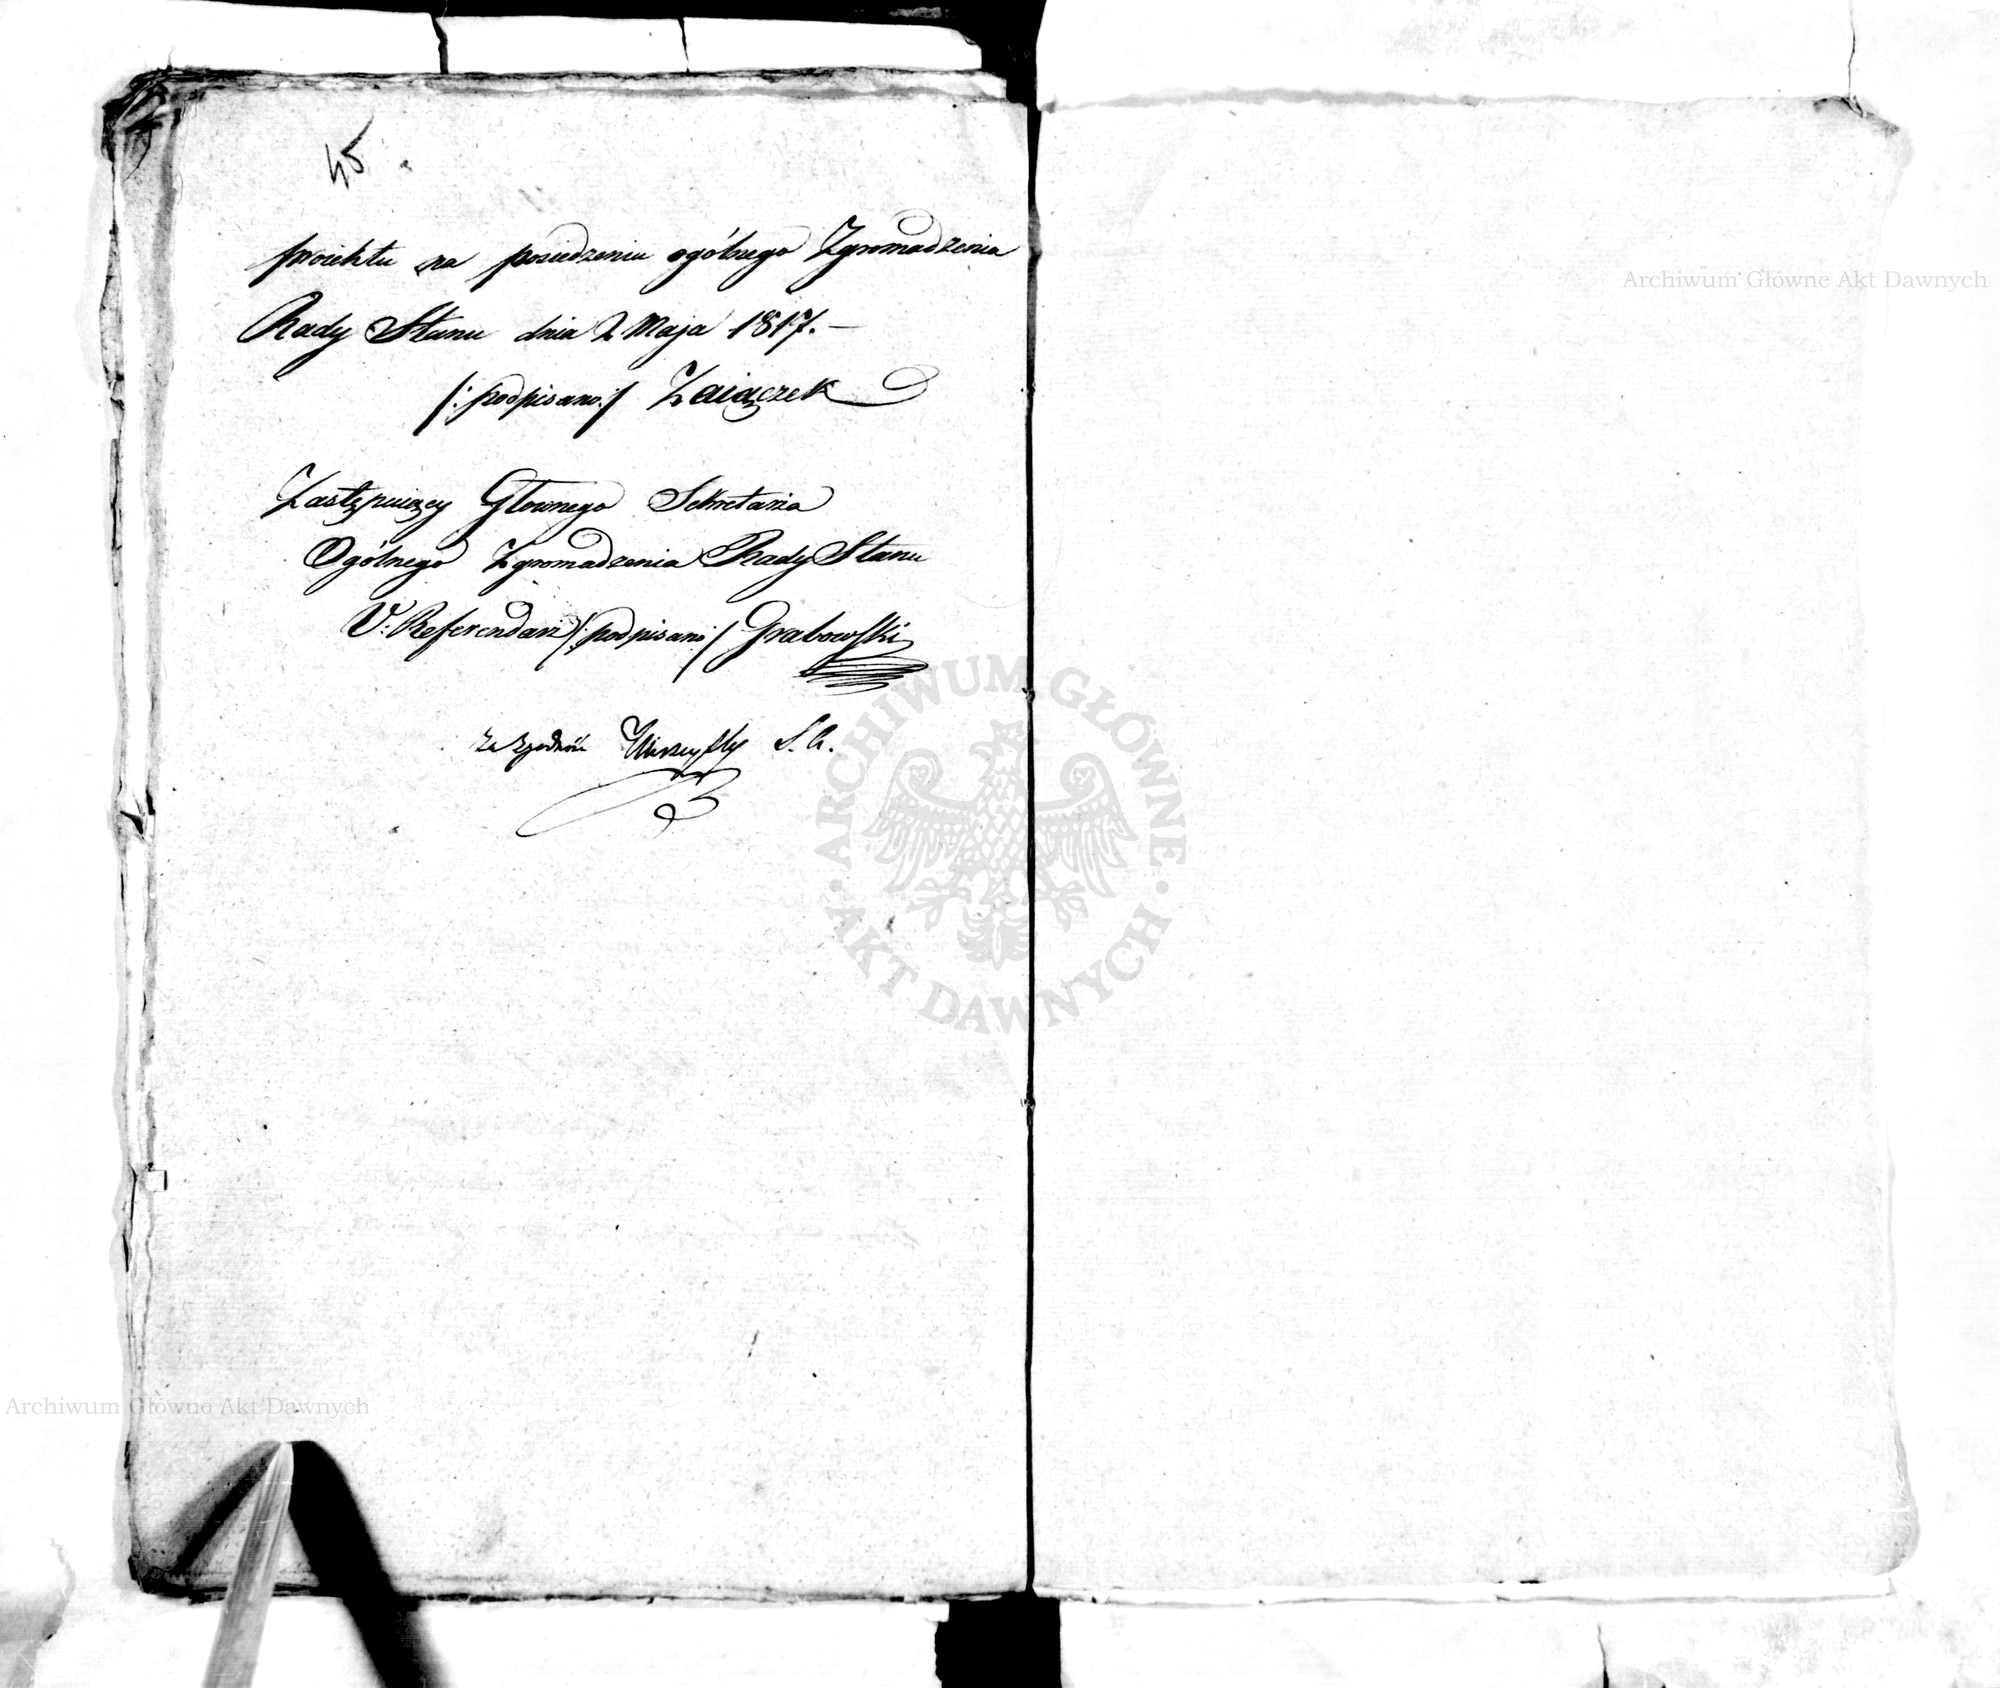 45
proiektu na posiedzeniu ogólnego Zgromadzenia
Rady Stanu dnia 2 Maja 1817. —
/: podpisano :/ Zaiączek
Zastępuiący Głownego Sekretarza
Ogólnego Zgromadzenia Rady Stanu
V. Referendarz /: podpisano :/ Grabowski
Za zgodność
Archiwum Główne Akt Dawnych
Archiwum Główne Akt Dawnych
ARCHIWUM GŁÓWNE
AKT DAWNYCH